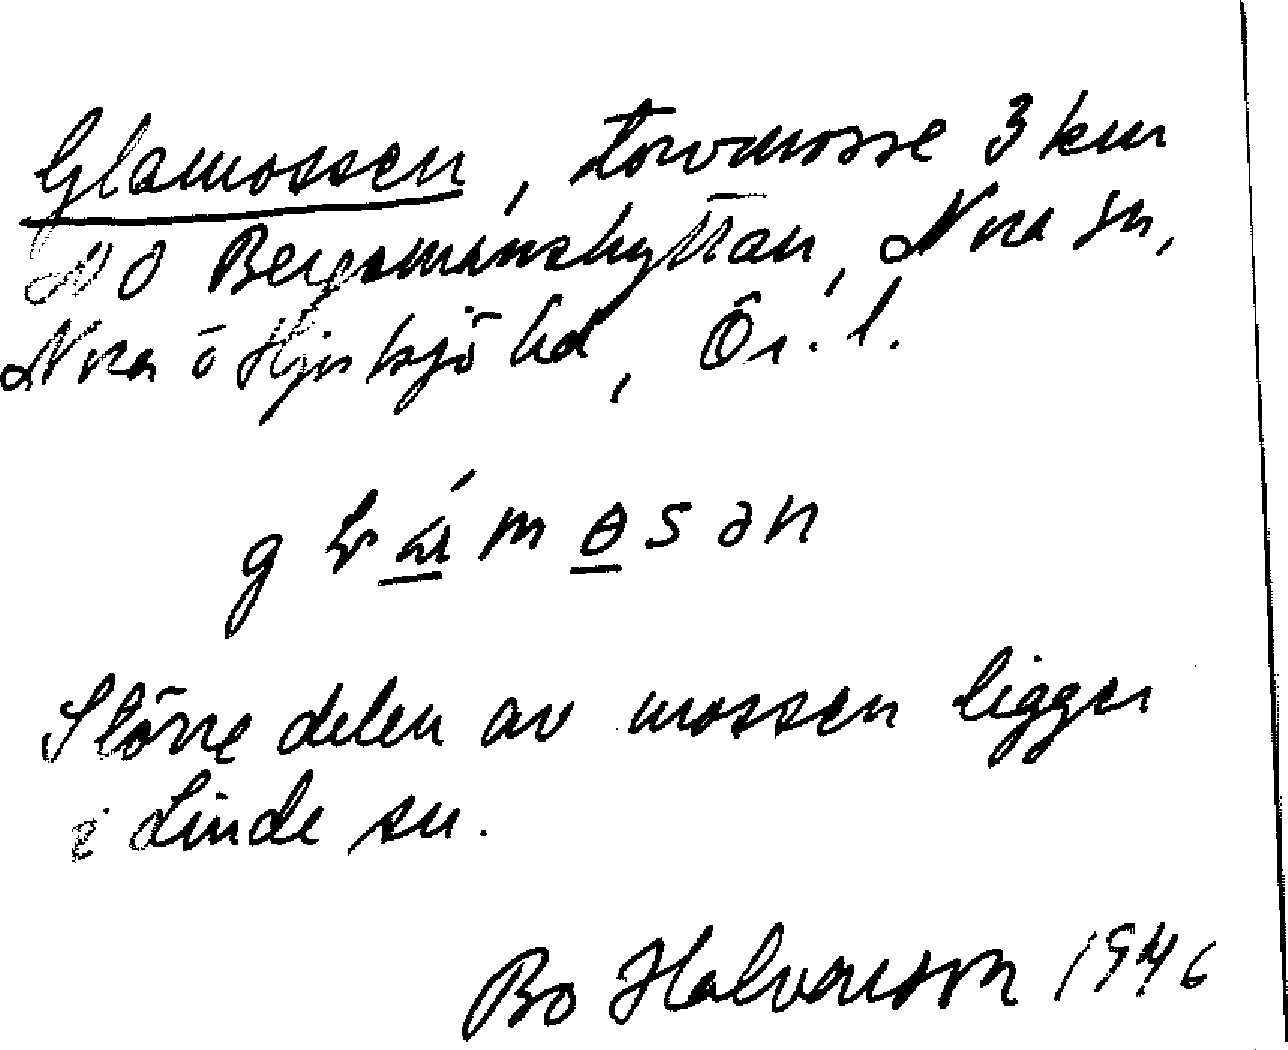 Glamossen, torvmosse 3 km
NO Bergsmanshyttan, Nora sn,
Nora o Hjulsjö hd, Ör. l.
Större delen av mossen ligger
i Linde sn.
Bo Halvarsson 1946